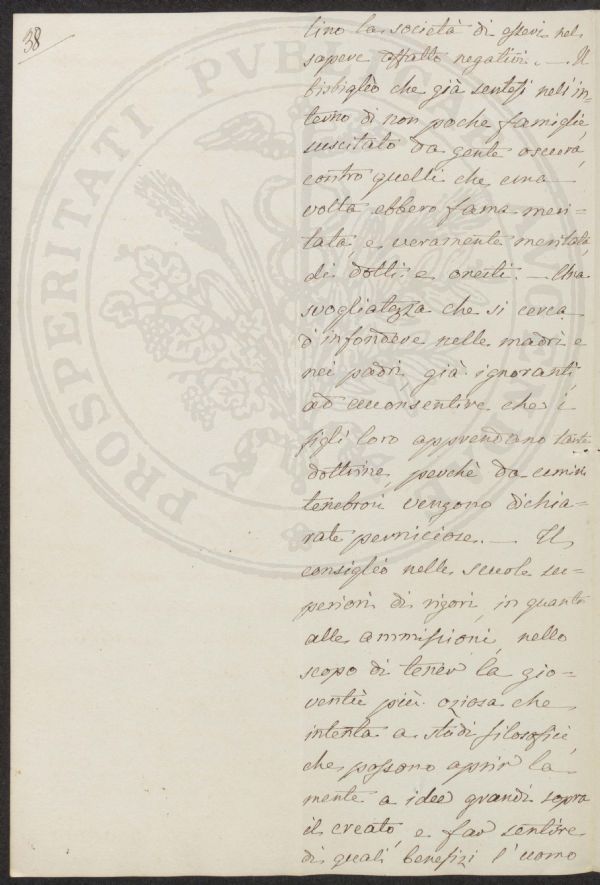 38
lino la società di esseri nel
sapere affatto negativi. — Il
bisbiglio che già sentesi nell'in=
terno di non poche famiglie,
suscitato da gente oscura,
contro quelli che una
volta ebbero fama meri=
tata, e veramente meritata,
di dotti e onesti. — Una
svogliatezza che si cerca
d'infondere nelle madri e
nei padri, già ignoranti,
ad acconsentire che i
figli loro apprendano tante
dottrine, perchè da uomini
tenebrosi vengono dichia=
rate perniciose. — Il
consiglio nelle scuole su=
periori di rigori, in quanto
alle ammissioni, nello
scopo di tener la gio=
ventù più oziosa che
intenta a studi filosofici,
che possono aprir la
mente a idee grandi sopra
il creato, e far sentire
di quali benefizi l'uomo
PROSPERITATI PUBLICAE AUGENDAE